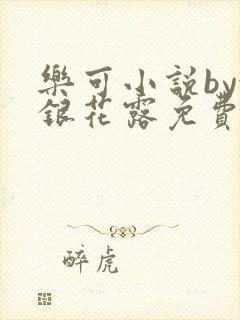 樂可小說by
銀花露免費
醉虎